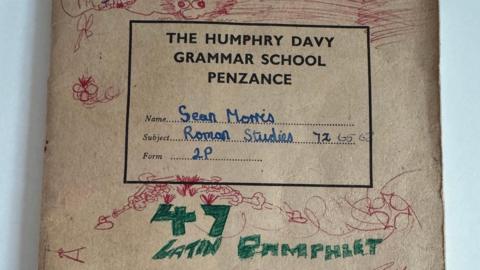 THE HUMPHRY DAVY
GRAMMAR SCHOOL
PENZANCE
Name Sean Morris
Subject Roman Studies 72 65 62
Form 2P
47
LATIN PAMPHLET